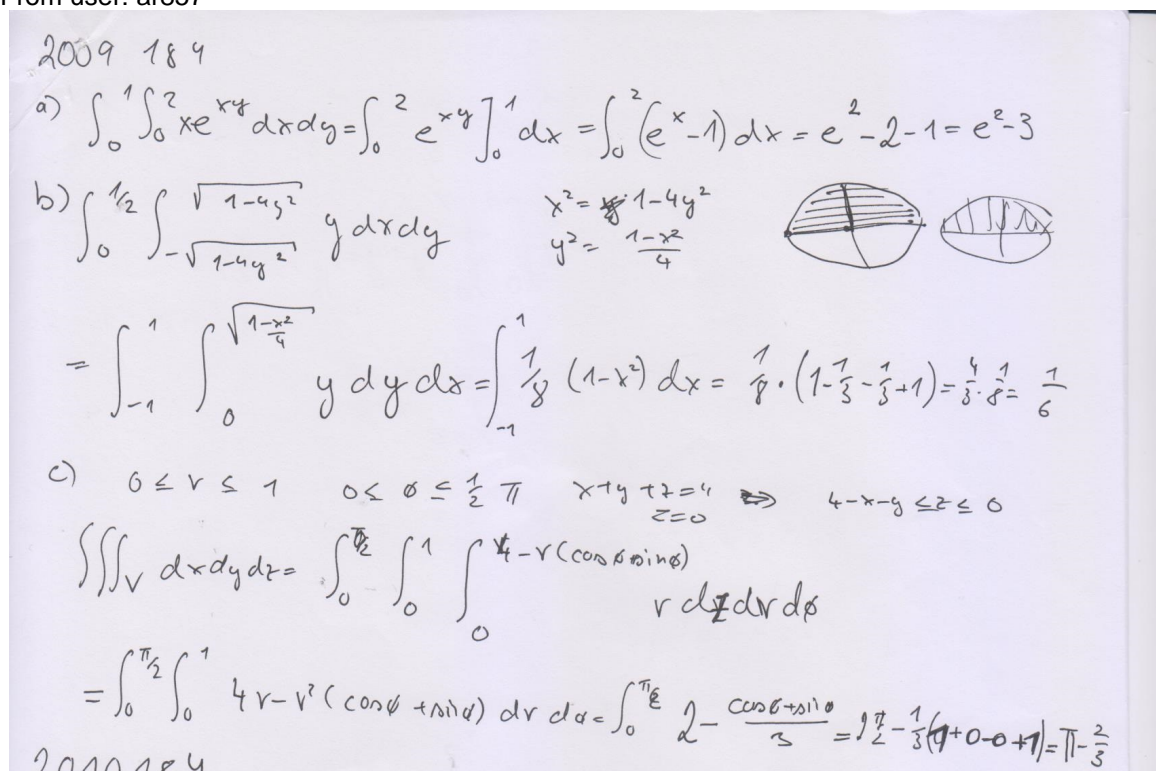 From user: ar857
2009 1&4
a) ∫₀¹ ∫₀² xe^{xy} dxdy = ∫₀² e^{xy}]₀¹ dx = ∫₀² (e^x - 1) dx = e² - 2 - 1 = e² - 3
b) ∫₀^{1/2} ∫_{-√(1-4y²)}^{√(1-4y²)} y dxdy
x² = 1-4y²
y² = (1-x²)/4
= ∫₋₁¹ ∫₀^{√((1-x²)/4)} y dy dx = ∫₋₁¹ 1/8 (1-x²) dx = 1/8 · (1 - 1/3 - 1/3 + 1) = 4/3 · 1/8 = 1/6
c) 0 ≤ r ≤ 1 0 ≤ ø ≤ 1/2 π x+y+z=4 z=0 ⇒ 4-x-y ≤ z ≤ 0
∫∫∫_V dxdydz = ∫₀^{π/2} ∫₀¹ ∫₀^{4-r(cosø sinø)} r dz dr dø
= ∫₀^{π/2} ∫₀¹ 4r - r² (cosø + sinø) dr dø = ∫₀^{π/2} 2 - (cosø+sinø)/3 = 2 π/2 - 1/3 (1+0-0+1) = π - 2/3
2010 1&4